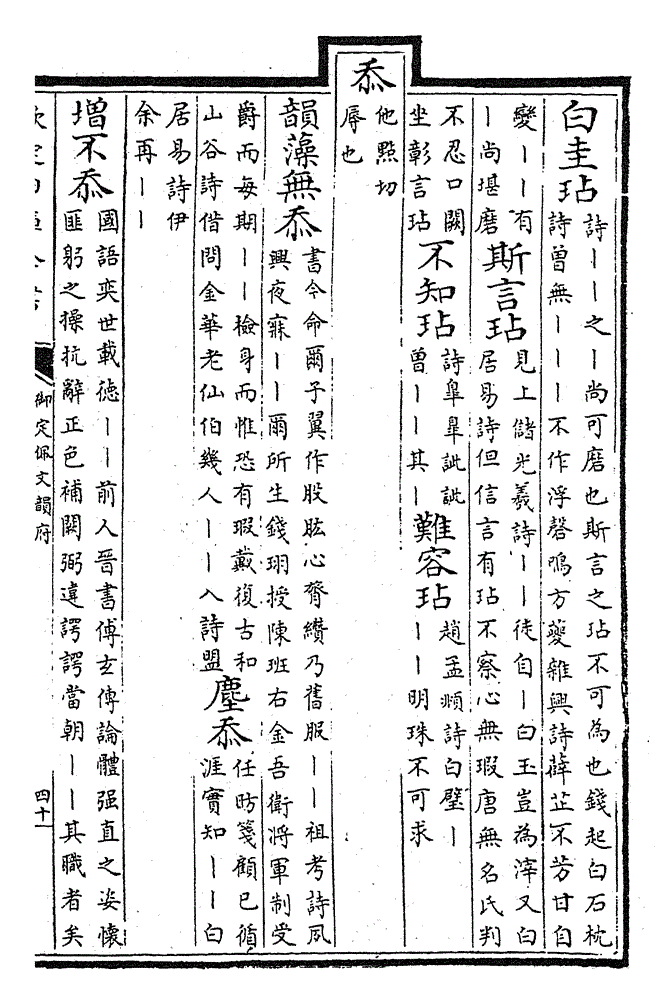 白圭玷詩｜｜之｜尚可磨也斯言之玷不可為也錢起白石枕
詩曾無｜｜｜不作浮磬鳴方夔雜興詩薜芷不芳甘自
變｜｜有
｜尚堪磨
斯言玷見上儲光羲詩｜｜徒自｜白玉豈為滓又白
居易詩但信言有玷不察心無瑕唐無名氏判
不忍口闕
坐彰言玷
不知玷詩臯臯訿訿
曾｜｜其｜
難容玷趙孟頫詩白璧｜
｜｜明珠不可求
忝
他㸃切
辱也
韻藻無忝書今命爾子翼作股肱心膂纘乃舊服｜｜祖考詩夙
興夜寐｜｜爾所生錢珝授陳班右金吾衛將軍制受
爵而每期｜｜檢身而惟恐有瑕戴復古和
山谷詩借問金華老仙伯幾人｜｜入詩盟
塵忝任昉箋顧已循
涯實知｜｜白
居易詩伊
余再｜｜
増不忝國語奕世載徳｜｜前人晉書傅玄傳論體强直之姿懷
匪躬之操抗辭正色補闕弼違諤諤當朝｜｜其職者矣
御定佩文韻府
四十一